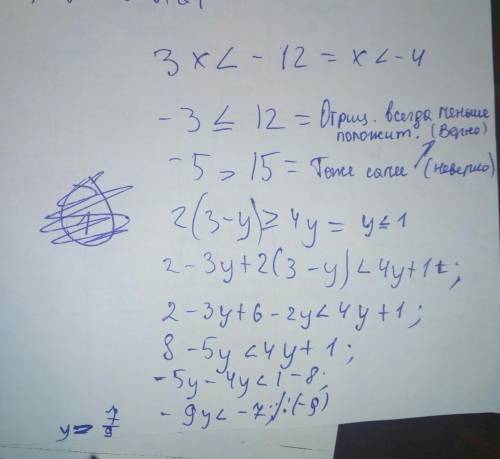 3x < - 12 = x < -4
-3 ≤ 12 = Отриц. всегда меньше положит. (Верно)
-5 > 15 = Тоже самое (неверно)
2(3-y) ≥ 4y = y ≤ 1
2 - 3y + 2(3 - y) < 4y + 1;
2 - 3y + 6 - 2y < 4y + 1;
8 - 5y < 4y + 1;
-5y - 4y < 1 - 8;
- 9y < - 7; /:(-9)
y > 7/9